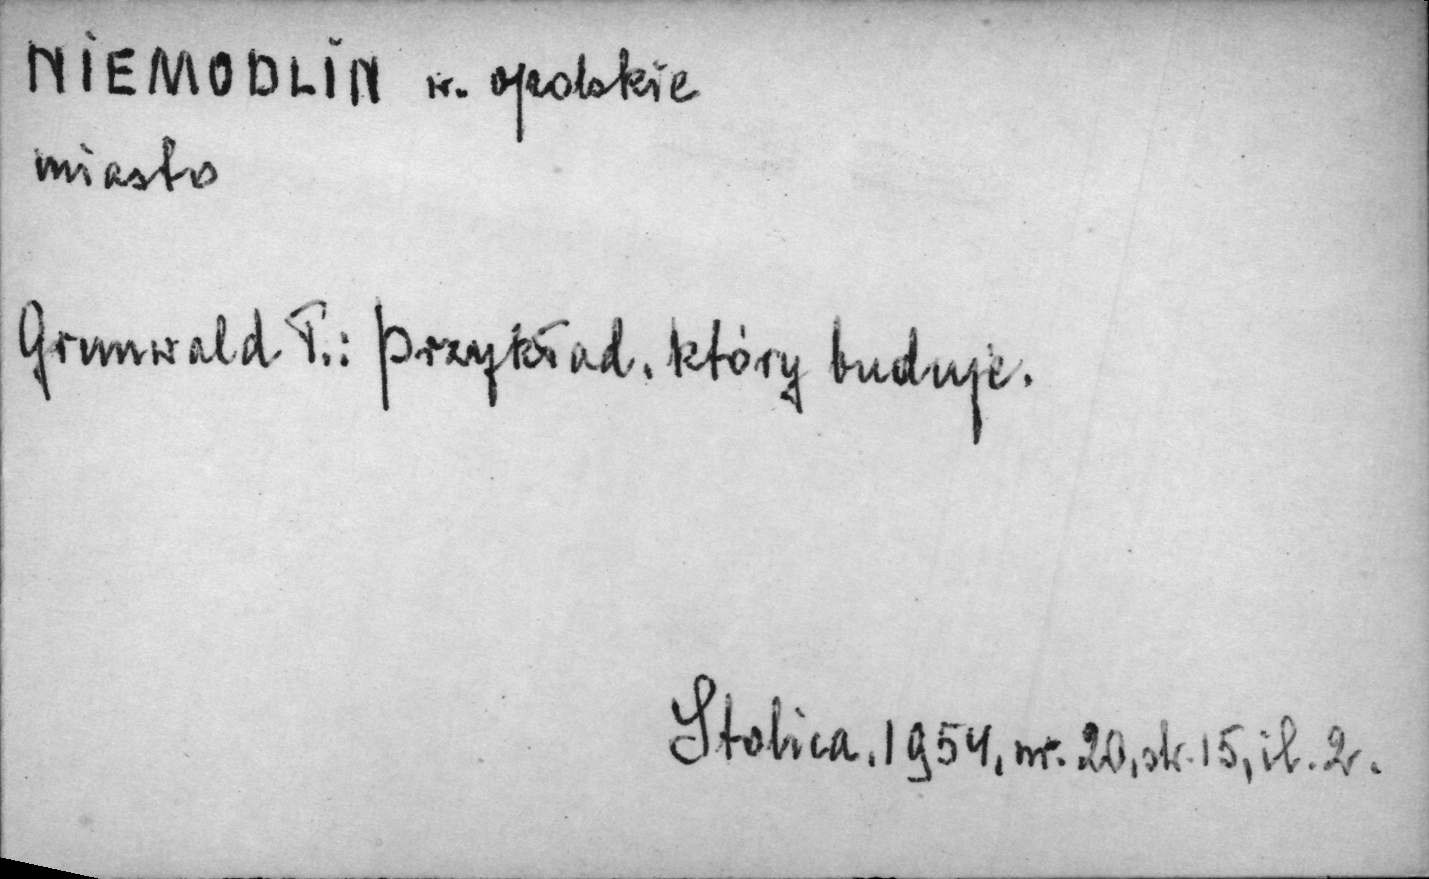 NIEMODLIN w. opolskie
miasto
Grunwald T.: Przykład, który buduje.
Stolica, 1954, nr. 20, str. 15, il. 2.